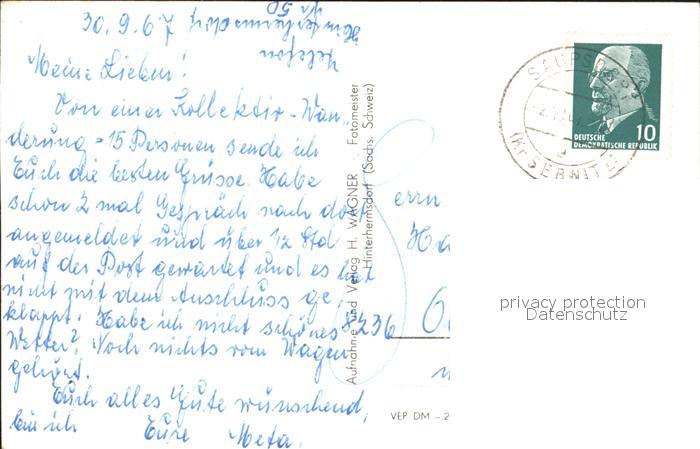 30.9.67
Telefon
Hinterhermsdorf
50
Meine Lieben!
Von einer Kollektiv-Wan-
derung = 15 Personen sende ich
Euch die besten Grüsse. Habe
schon 2 mal Gespräch nach dort
angemeldet und über 1/2 Std
auf der Post gewartet und es hat
nicht mit dem Anschluss ge-
klappt. Habe ich nicht schönes
Wetter? Noch nichts vom Wagen
gehört.
Euch alles Gute wünschend,
bin ich Eure Meta.
Aufnahme und Verlag H. WAGNER · Fotomeister
Hinterhermsdorf (Sächs. Schweiz)
errn
Ha
8236
VEP DM –.2
SAUPSDORF
(Kr SEBNITZ)
a
10
DEUTSCHE
DEMOKRATISCHE REPUBLIK
privacy protection
Datenschutz